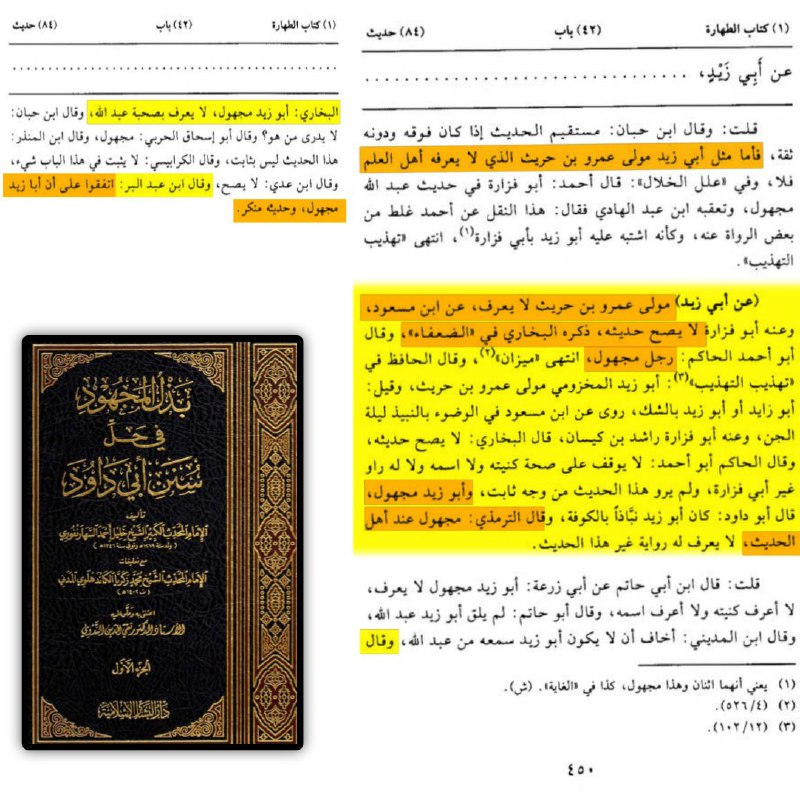 (١) كتاب الطهارة (٤٢) باب (٨٤) حديث
عن أَبِي زَيْدٍ، ................................
قلت: وقال ابن حبان: مستقيم الحديث إذا كان فوقه ودونه
ثقة، فأما مثل أبي زيد مولى عمرو بن حريث الذي لا يعرفه أهل العلم
فلا، وفي «علل الخلال»: قال أحمد: أبو فزارة في حديث عبد الله
مجهول، وتعقبه ابن عبد الهادي فقال: هذا النقل عن أحمد غلط من
بعض الرواة عنه، وكأنه اشتبه عليه أبو زيد بأبي فزارة(١)، انتهى «تهذيب
التهذيب».
(عن أبي زيد) مولى عمرو بن حريث لا يعرف، عن ابن مسعود،
وعنه أبو فزارة لا يصح حديثه، ذكره البخاري في «الضعفاء»، وقال
أبو أحمد الحاكم: رجل مجهول، انتهى «ميزان»(٢)، وقال الحافظ في
«تهذيب التهذيب»(٣): أبو زيد المخزومي مولى عمرو بن حريث، وقيل:
أبو زايد أو أبو زيد بالشك، روى عن ابن مسعود في الوضوء بالنبيذ ليلة
الجن، وعنه أبو فزارة راشد بن كيسان، قال البخاري: لا يصح حديثه،
وقال الحاكم أبو أحمد: لا يوقف على صحة كنيته ولا اسمه ولا له راو
غير أبي فزارة، ولم يرو هذا الحديث من وجه ثابت، وأبو زيد مجهول،
قال أبو داود: كان أبو زيد نبَّاذاً بالكوفة، وقال الترمذي: مجهول عند أهل
الحديث، لا يعرف له رواية غير هذا الحديث.
قلت: قال ابن أبي حاتم عن أبي زرعة: أبو زيد مجهول لا يعرف،
لا أعرف كنيته ولا أعرف اسمه، وقال أبو حاتم: لم يلق أبو زيد عبد الله،
وقال ابن المديني: أخاف أن لا يكون أبو زيد سمعه من عبد الله، وقال
(١) يعني أنهما اثنان وهذا مجهول، كذا في «الغاية». (ش).
(٢) (٥٢٦/٤).
(٣) (١٠٢/١٢).
٤٥٠
(١) كتاب الطهارة (٤٢) باب (٨٤) حديث
................................
البخاري: أبو زيد مجهول، لا يعرف بصحبة عبد الله، وقال ابن حبان:
لا يدرى من هو؟ وقال أبو إسحاق الحربي: مجهول، وقال ابن المنذر:
هذا الحديث ليس بثابت، وقال الكرابيسي: لا يثبت في هذا الباب شيء،
وقال ابن عدي: لا يصح، وقال ابن عبد البر: اتفقوا على أن أبا زيد
مجهول، وحديثه منكر.
بَذْلُ المَجْهُود
فِي حَلِّ
سُنَن أبي دَاوُد
تأليف
الإمام المحدث الكبير الشيخ خليل أحمد السهارنفوري
مع تعليقات
الإمام المحدث الشيخ محمد زكريا الكاندهلوي المدني
اعتنى به وعلق عليه
الأستاذ الدكتور تقي الدين الندوي
الجزء الأول
دار البشائر الإسلامية